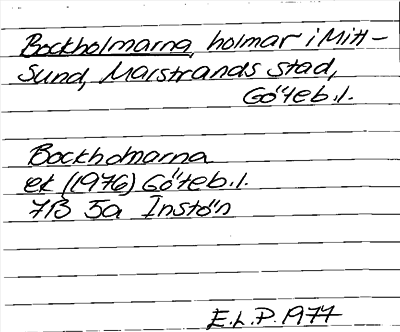 Bockholmarna, holmar i Mitt-
Sund, Marstrands stad,
Göteb.l.
Bockhomarna
ek (1976) Göteb.l.
7B 5a Instön
E.L.P. 1977